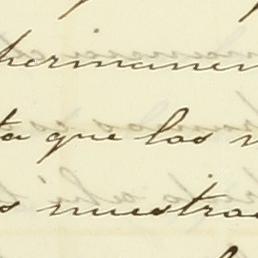 hermanen
ta que las
s nuestras